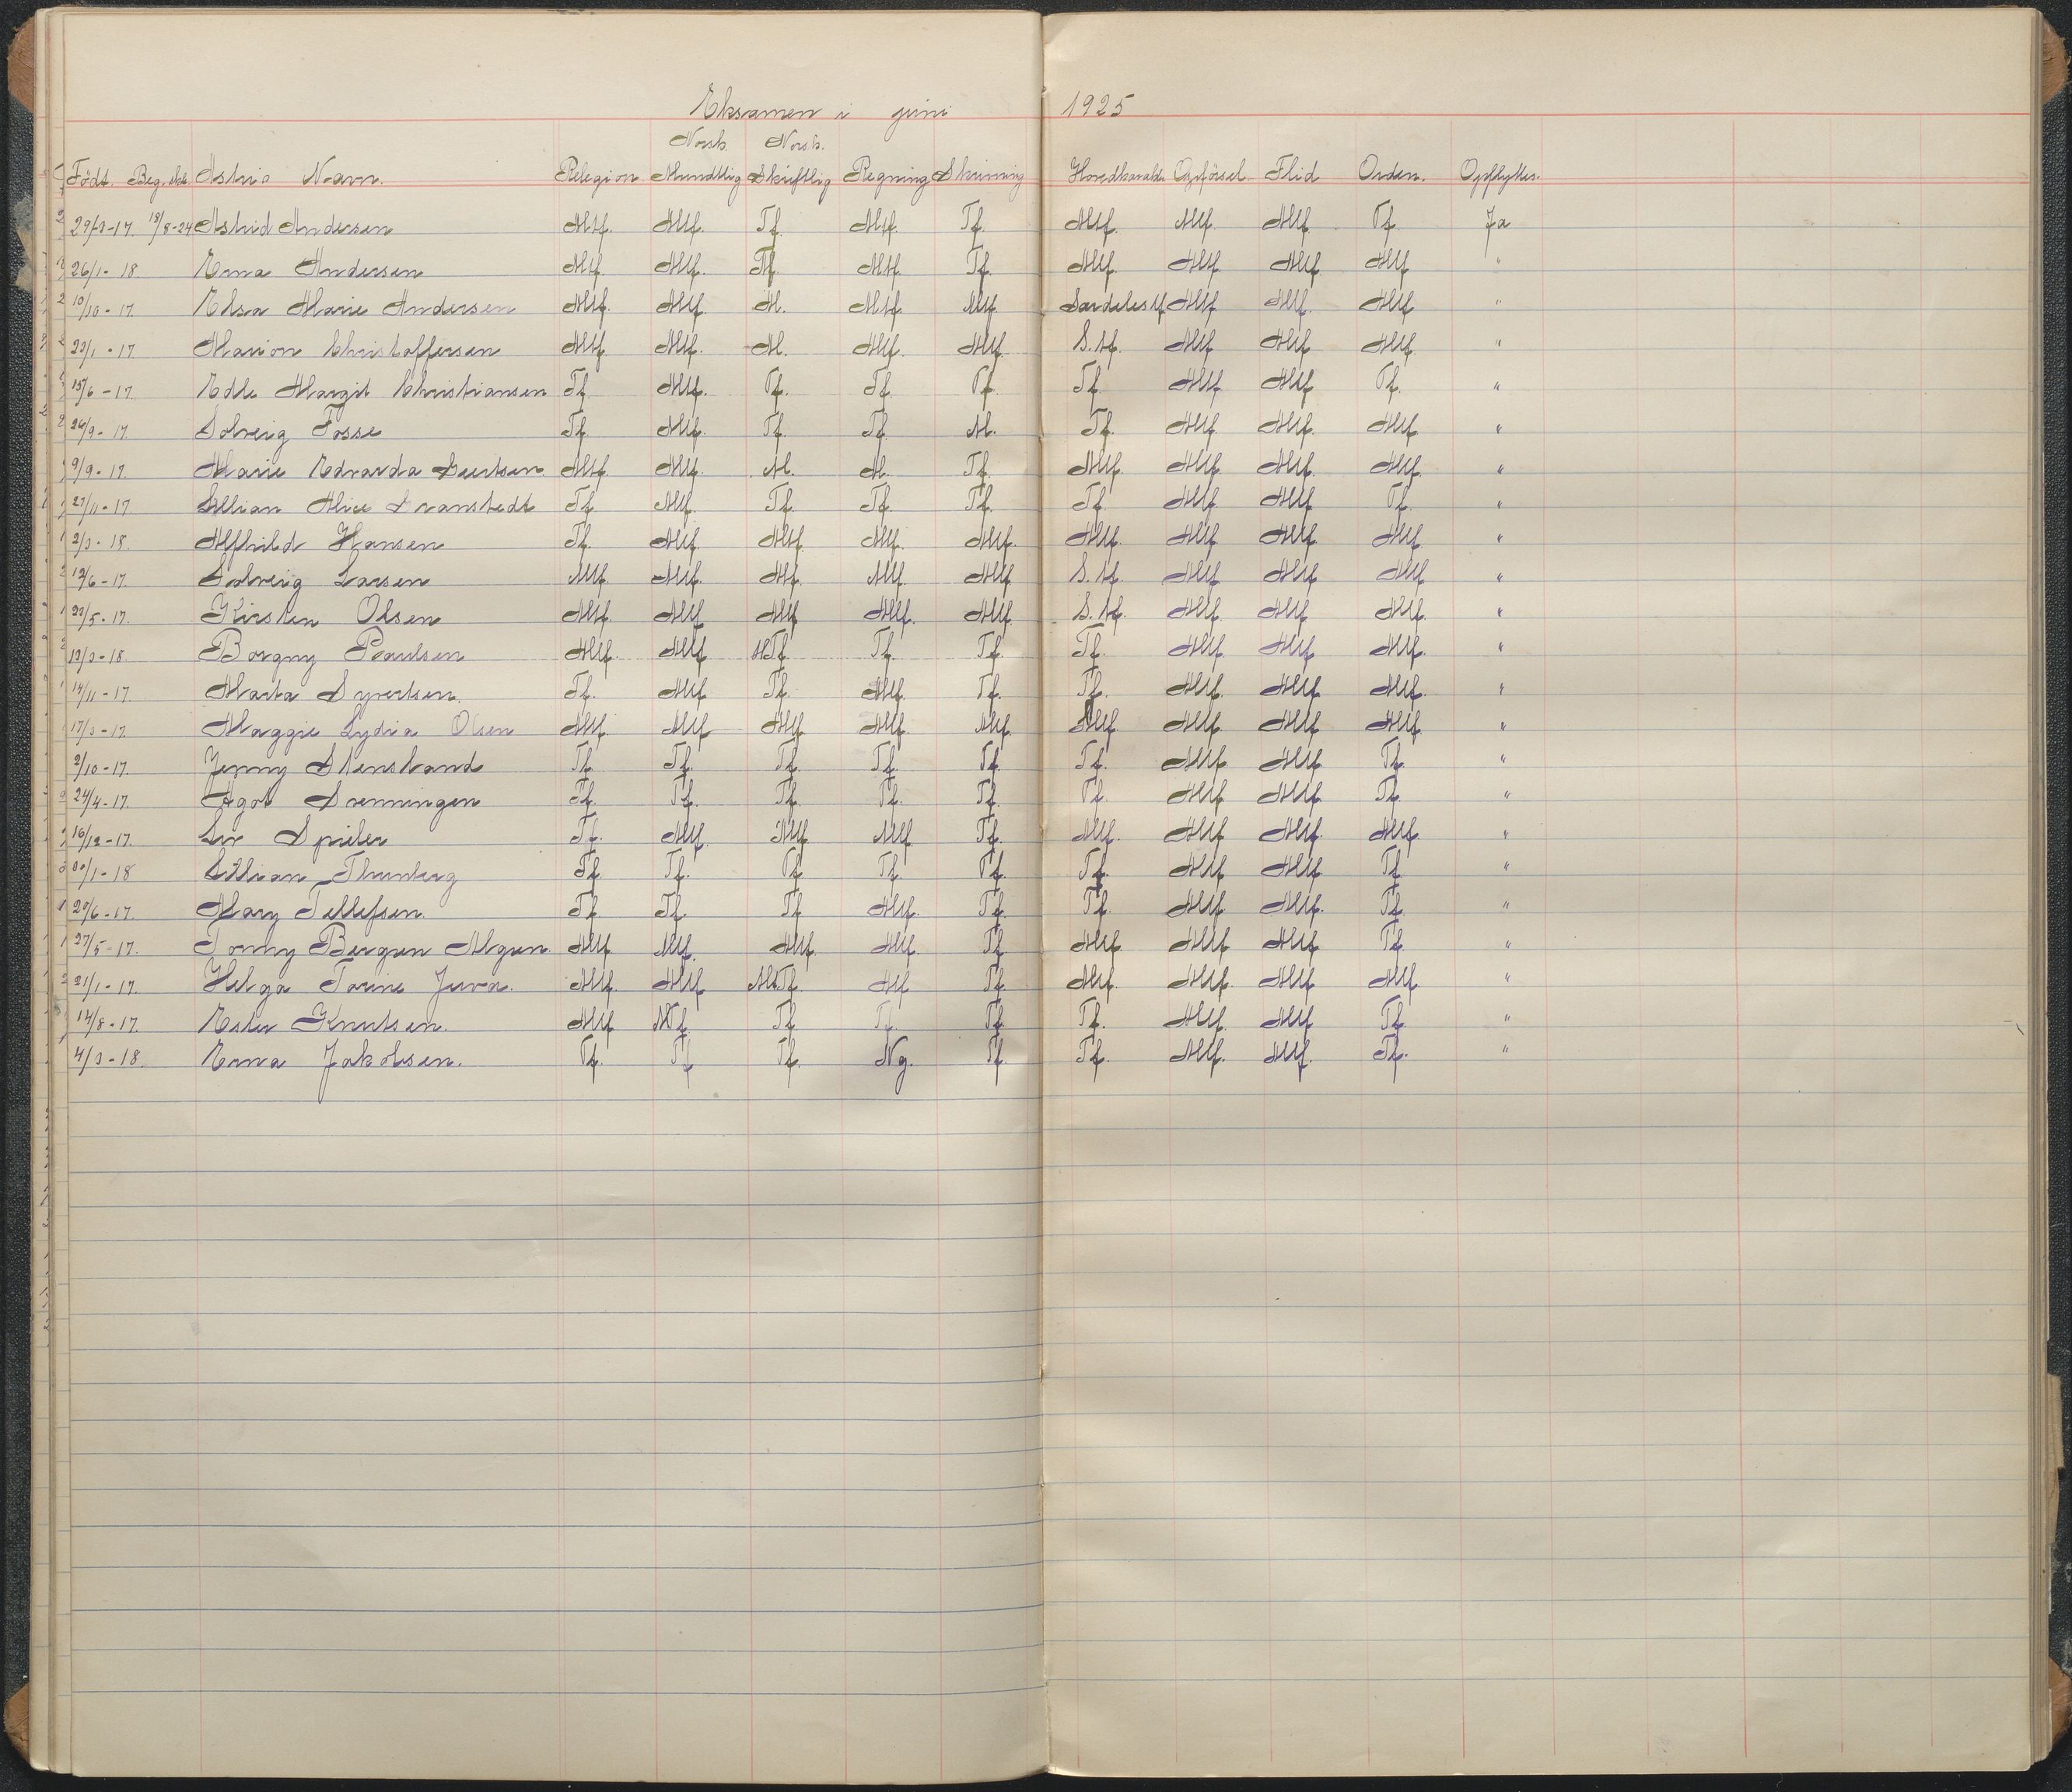 Eksamen i juni 1925
Norsk. Norsk.
Födt. Beg. skol. Astrid Navn. Relegion Mundtlig Skriftlig Regning Skrivning Hovedkarakter Opförsel Flid Orden. Opflyttes.
29/3-17. 18/8-24 Astrid Andersen Mtf. Mtf. Tf. Mtf. Tf. Mtf. Mtf. Mtf. Tf. Ja
26/1-18 Erna Andersen Mtf. Mtf. Tf. Mtf. Tf. Mtf. Mtf Mtf Mtf "
10/10-17. Elsa Marie Andersen Mtf. Mtf. M. Mtf. Mtf. Særdeles tf. Mtf Mtf. Mtf "
22/1-17 Marion Christoffersen Mtf. Mtf. M. Mtf. Mtf. S.tf. Mtf Mtf Mtf "
15/6-17. Edle Margit Christiansen Tf. Mtf. Tf. Tf. Tf. Tf. Mtf Mtf Tf. "
26/9-17. Solveig Fosse Tf. Mtf. Tf. Tf. M. Tf. Mtf Mtf. Mtf. "
9/9-17. Marie Edvarda Mtf. Mtf. M. M. Tf. Mtf. Mtf. Mtf. Mtf. "
27/11-17 Lillian Alice Svanstedt Tf. Mtf. Tf. Tf. Tf. Tf. Mtf. Mtf. Tf. "
2/3-18. Alfhild Hansen Tf. Mtf. Mtf Mtf. Mtf. Mtf. Mtf Mtf. Mtf "
12/6-17. Solveig Larsen Mtf. Mtf. Mtf. Mtf. Mtf S.tf. Mtf Mtf Mtf "
22/5-17. Kirsten Olsen Mtf. Mtf Mtf Mtf. Mtf. S.tf. Mtf. Mtf Mtf. "
13/3-18. Borgny Paulsen Mtf. Mtf MTf. Tf. Tf. Tf. Mtf. Mtf Mtf. "
14/11-17 Marta Syvertsen. Tf. Mtf Tf. Mtf. Tf. Tf. Mtf. Mtf Mtf. "
17/3-17. Maggie Lydia Olsen Mtf. Mtf Mtf Mtf. Mtf. Mtf Mtf Mtf Mtf. "
2/10-17. Jenny Stenstrand Tf. Tf. Tf. Tf. Tf. Tf. Mtf Mtf Tf. "
24/4-17. Agot Svenningen Tf. Tf. Tf. Tf. Tf. Tf. Mtf Mtf. Tf. "
16/12-17. Liv Spieler Tf. Mtf. Mtf Mtf Tf. Mtf. Mtf Mtf. Mtf. "
30/1-18 Lillian Thunberg Tf. Tf. Tf Tf. Tf. Tf. Mtf Mtf Tf. "
29/6-17. Mary Tellefsen Tf. Tf. Tf Mtf. Tf. Tf. Mtf Mtf. Tf. "
27/5-17. Tordny Bergun Algun. Mtf Mtf. Mtf. Mtf. Tf. Mtf Mtf Mtf Tf. "
21/1-17. Helga Torine Juva. Mtf. Mtf MTf. Mtf Tf. Mtf. Mtf. Mtf Mtf "
14/8-17. Ester Knutsen. Mtf MTf. Tf. Tf. Tf. Tf. Mtf. Mtf Tf. "
4/3-18. Erna Jakobsen. Tf. Tf Tf. Ng. Tf. Tf. Mtf. Mtf. Tf. "